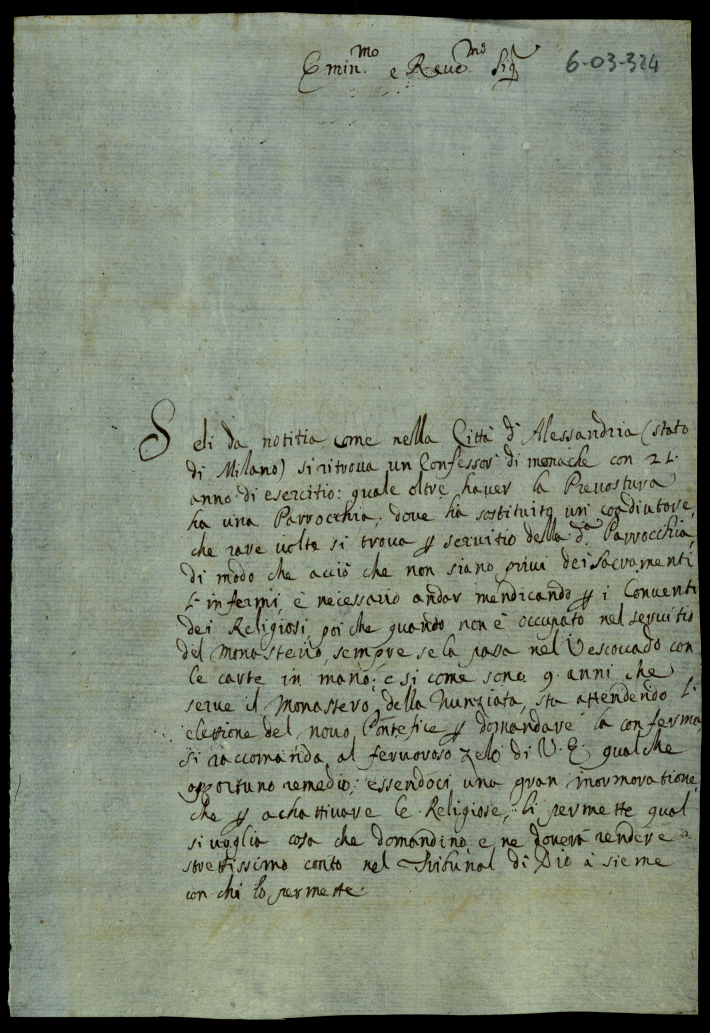 Emin.mo e Reue.mo Sig.r
6-03-324
Seli da notitia come nella Città d'Alessandria (stato
di Milano) si ritroua un Confessor di monache con 21.
anno di esercitio: quale oltre hauer la Preuostura
ha una Parrocchia, dove ha sostituito un coadiutore,
che rare uolte si trova p seruitio della d.a Parrocchia,
di modo che acciò che non siano priui dei Sacramenti
l'infermi, è necessario andar mendicando p i Conuenti
dei Religiosi, poi che quando non è occupato nel seruitio
del Monasterio, sempre se la passa nel Vescouado con
le carte in mano; e si come sono 9. anni che
serue il Monastero della Nunziata, sta attendendo l'
elettione del nouo Pontefice p domandare la conferma
si raccomanda al feruoroso zelo di V.E. qualche
opportuno remedio; essendoci una gran mormoratione,
che p achattiuare le Religiose, li permette qual
si uoglia cosa che domandino, e ne douerà rendere
strettissimo conto nel Tribunal di Dio a sieme
con chi lo permette.